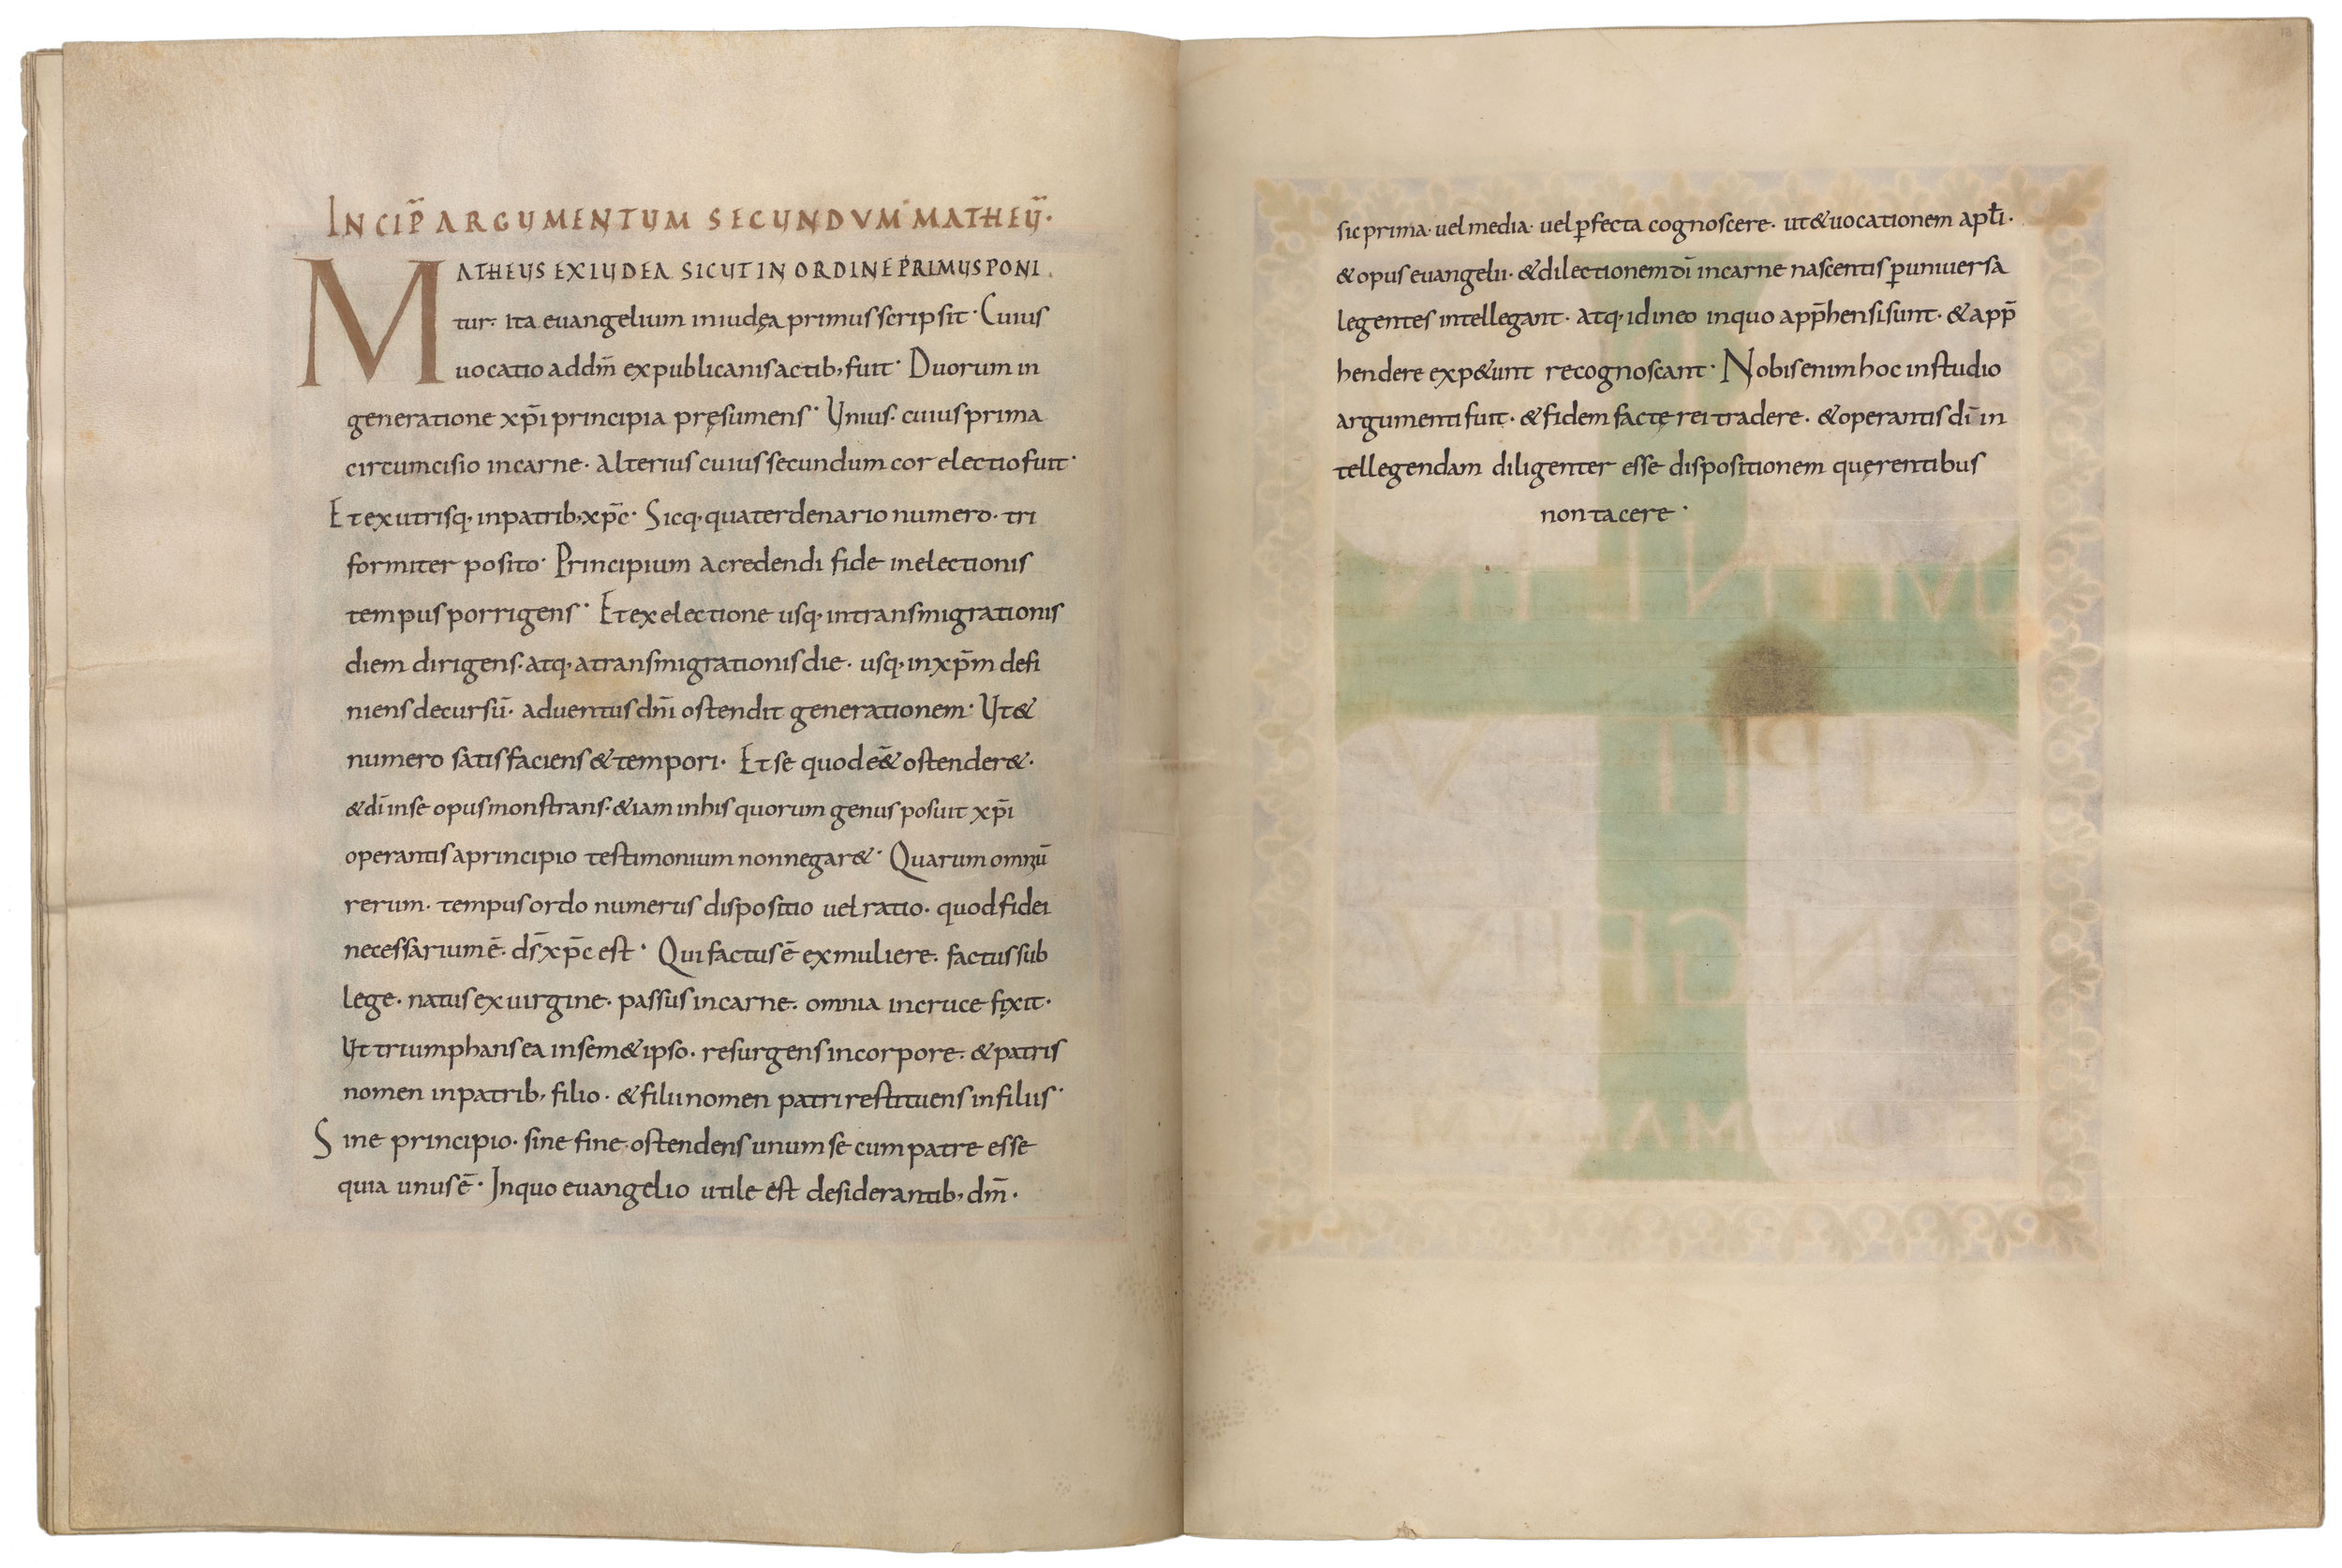 INCIP̄ ARGUMENTUM SECUNDVM MATHEU̅·
MATHEUS EX IUDEA SICUT IN ORDINE PRIMUS PONI
tur· ita euangelium in iudęa primus scripsit· Cuius
uocatio ad dm̄ ex publicanis actib; fuit· Duorum in
generatione xp̄i principia pręsumens· Unius· cuius prima
circumcisio in carne· Alterius cuius secundum cor electio fuit·
Et ex utrisq; in patrib; xp̄c· Sicq; quaterdenario numero· tri
formiter posito· Principium a credendi fide in electionis
tempus porrigens· Et ex electione usq; in transmigrationis
diem dirigens· atq; a transmigrationis die· usq; in xp̄m defi
niens decursū· aduentus dn̄i ostendit generationem· Ut &
numero satisfaciens & tempori· Et se quod eēt ostender&·
& dī in se opus monstrans· &iam in his quorum genus posuit xp̄i
operantis a principio testimonium non negar&· Quarum omniū
rerum· tempus ordo numerus dispositio uel ratio· quod fidei
necessarium ē· ds̄ xp̄c est· Qui factus ē ex muliere· factus sub
lege· natus ex uirgine· passus in carne· omnia in cruce fixit·
Ut triumphans ea in sem&ipso· resurgens in corpore· & patris
nomen in patrib; filio· & filii nomen patri restituens in filiis·
Sine principio· sine fine· ostendens unum se cum patre esse
quia unus ē· In quo euangelio utile est desiderantib; dm̄·
sic prima· uel media· uel p̲fecta cognoscere· ut & uocationem apł̄i·
& opus euangelii· & dilectionem dī in carne nascentis p̲ uniuersa
legentes intellegant· atq; id in eo in quo app̄hensi sunt· & app̄
hendere exp&unt recognoscant· Nobis enim hoc in studio
argumenti fuit· & fidem factę rei tradere· & operantis dī in
tellegendam diligenter esse dispositionem quęrentibus
non tacere·